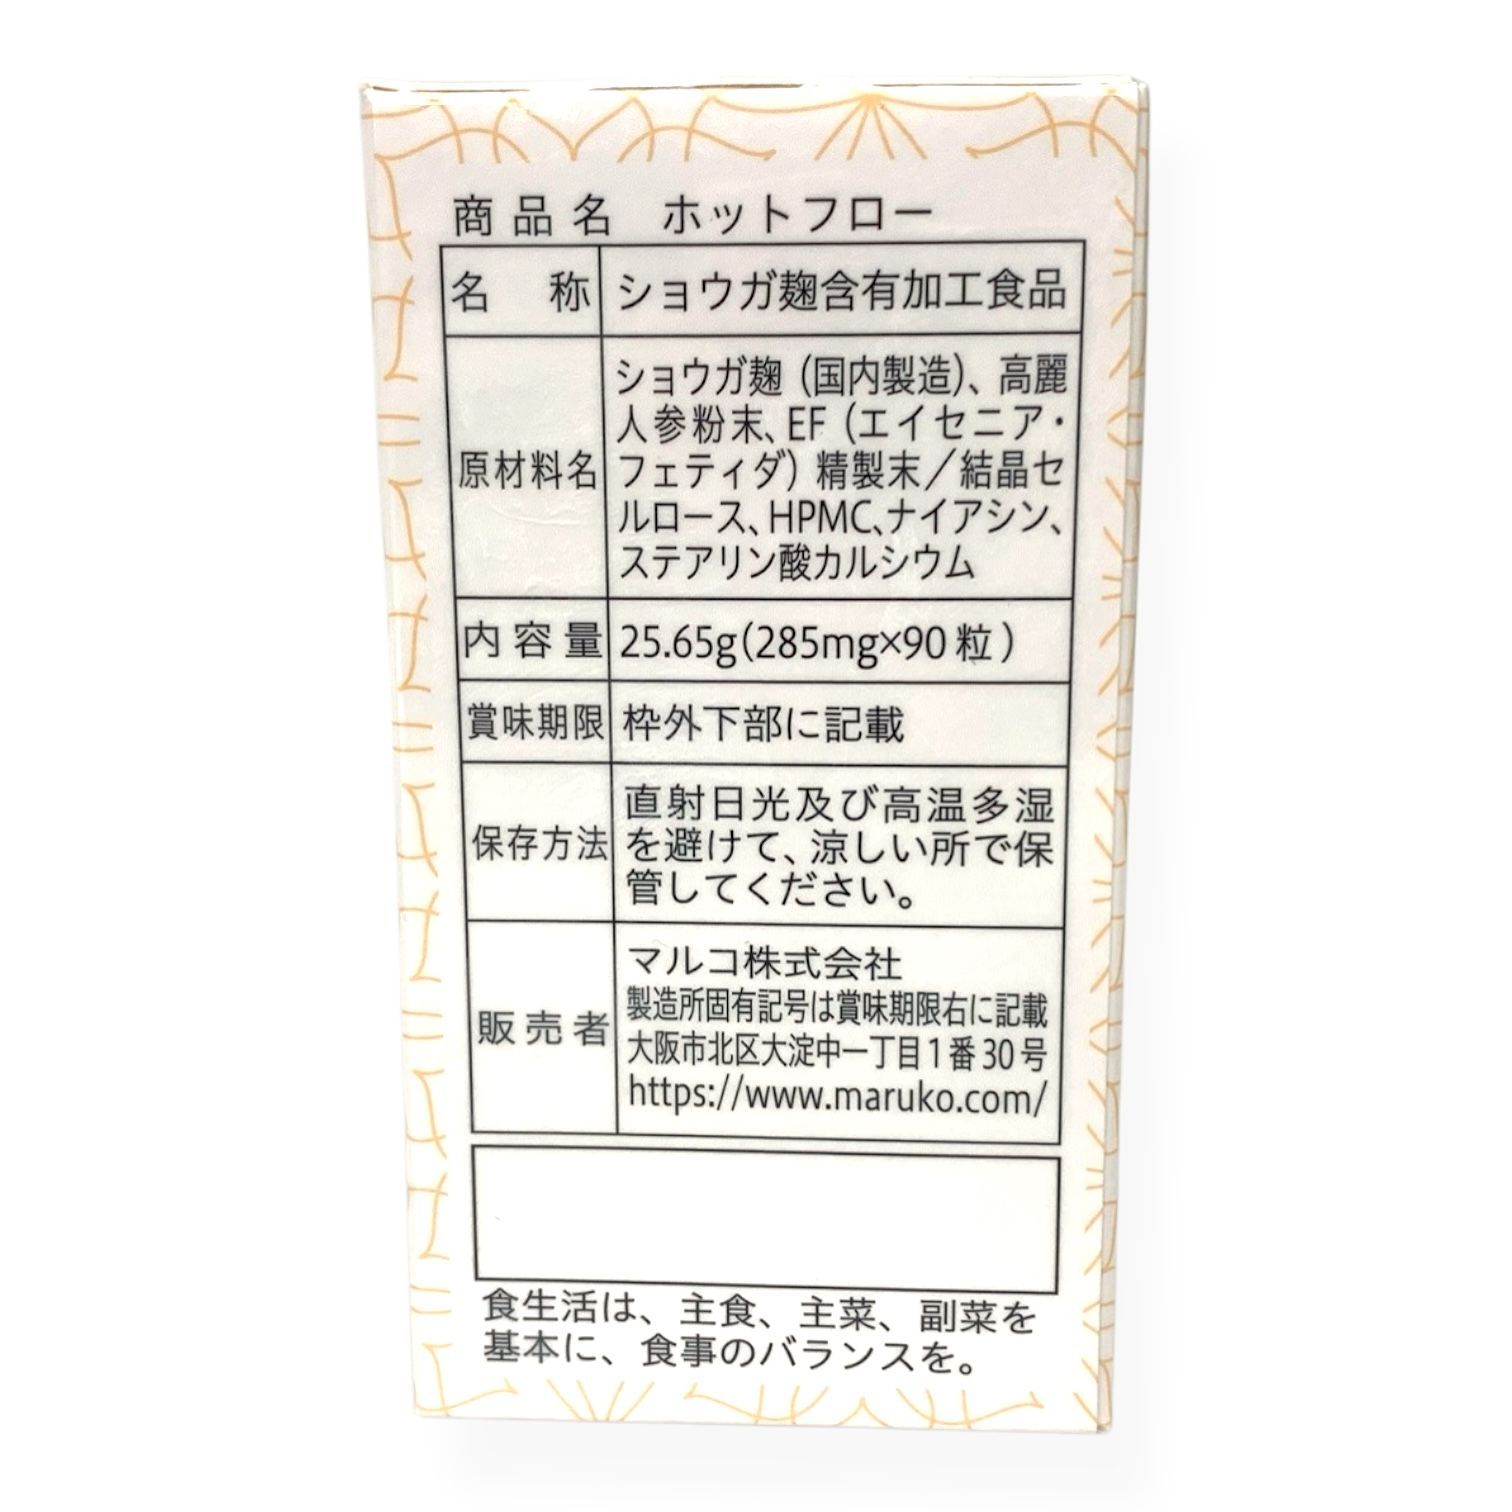 商品名 ホットフロー
名称 ショウガ麹含有加工食品
原材料名 ショウガ麹（国内製造）、高麗
人参粉末、EF（エイセニア・
フェティダ）精製末／結晶セ
ルロース、HPMC、ナイアシン、
ステアリン酸カルシウム
内容量 25.65g(285mg×90粒)
賞味期限 枠外下部に記載
保存方法 直射日光及び高温多湿
を避けて、涼しい所で保
管してください。
販売者 マルコ株式会社
製造所固有記号は賞味期限右に記載
大阪市北区大淀中一丁目1番30号
https://www.maruko.com/
食生活は、主食、主菜、副菜を
基本に、食事のバランスを。